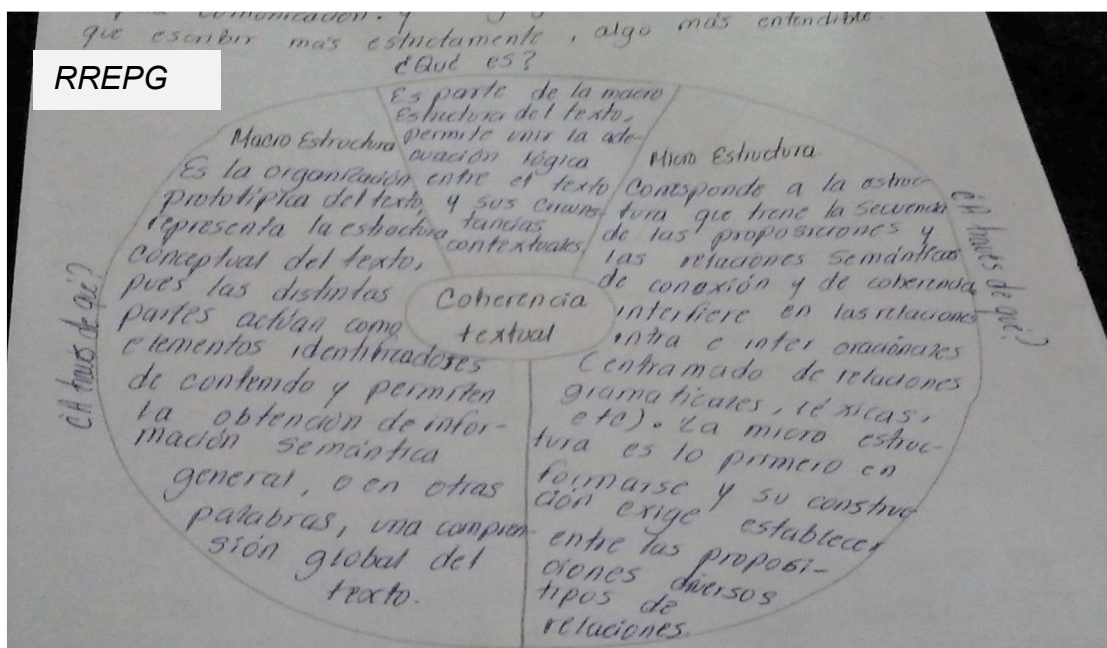 comunicación. y
que escribir más estrictamente, algo más entendible.
RREPG
¿Qué es?
Es parte de la macro
Estructura del texto,
permite unir la ade-
cuación lógica
entre el texto
y sus circuns-
tancias
contextuales.
Macro Estructura
Es la organización
prototípica del texto,
representa la estructura
conceptual del texto,
pues las distintas
partes actúan como
elementos identificadores
de contenido y permiten
la obtención de infor-
mación semántica
general, o en otras
palabras, una compren-
sión global del
texto.
¿A través de qué?
Coherencia
textual
Micro Estructura
Corresponde a la estruc-
tura que tiene la secuencia
de las proposiciones y
las relaciones semánticas
de conexión y de coherencia
interfiere en las relaciones
intra e inter oracionales
(entramado de relaciones
gramaticales, léxicas,
etc). La micro estruc-
tura es lo primero en
formarse y su construc
ción exige establecer
entre las proposi-
ciones diversos
tipos de
relaciones.
¿A través de qué?